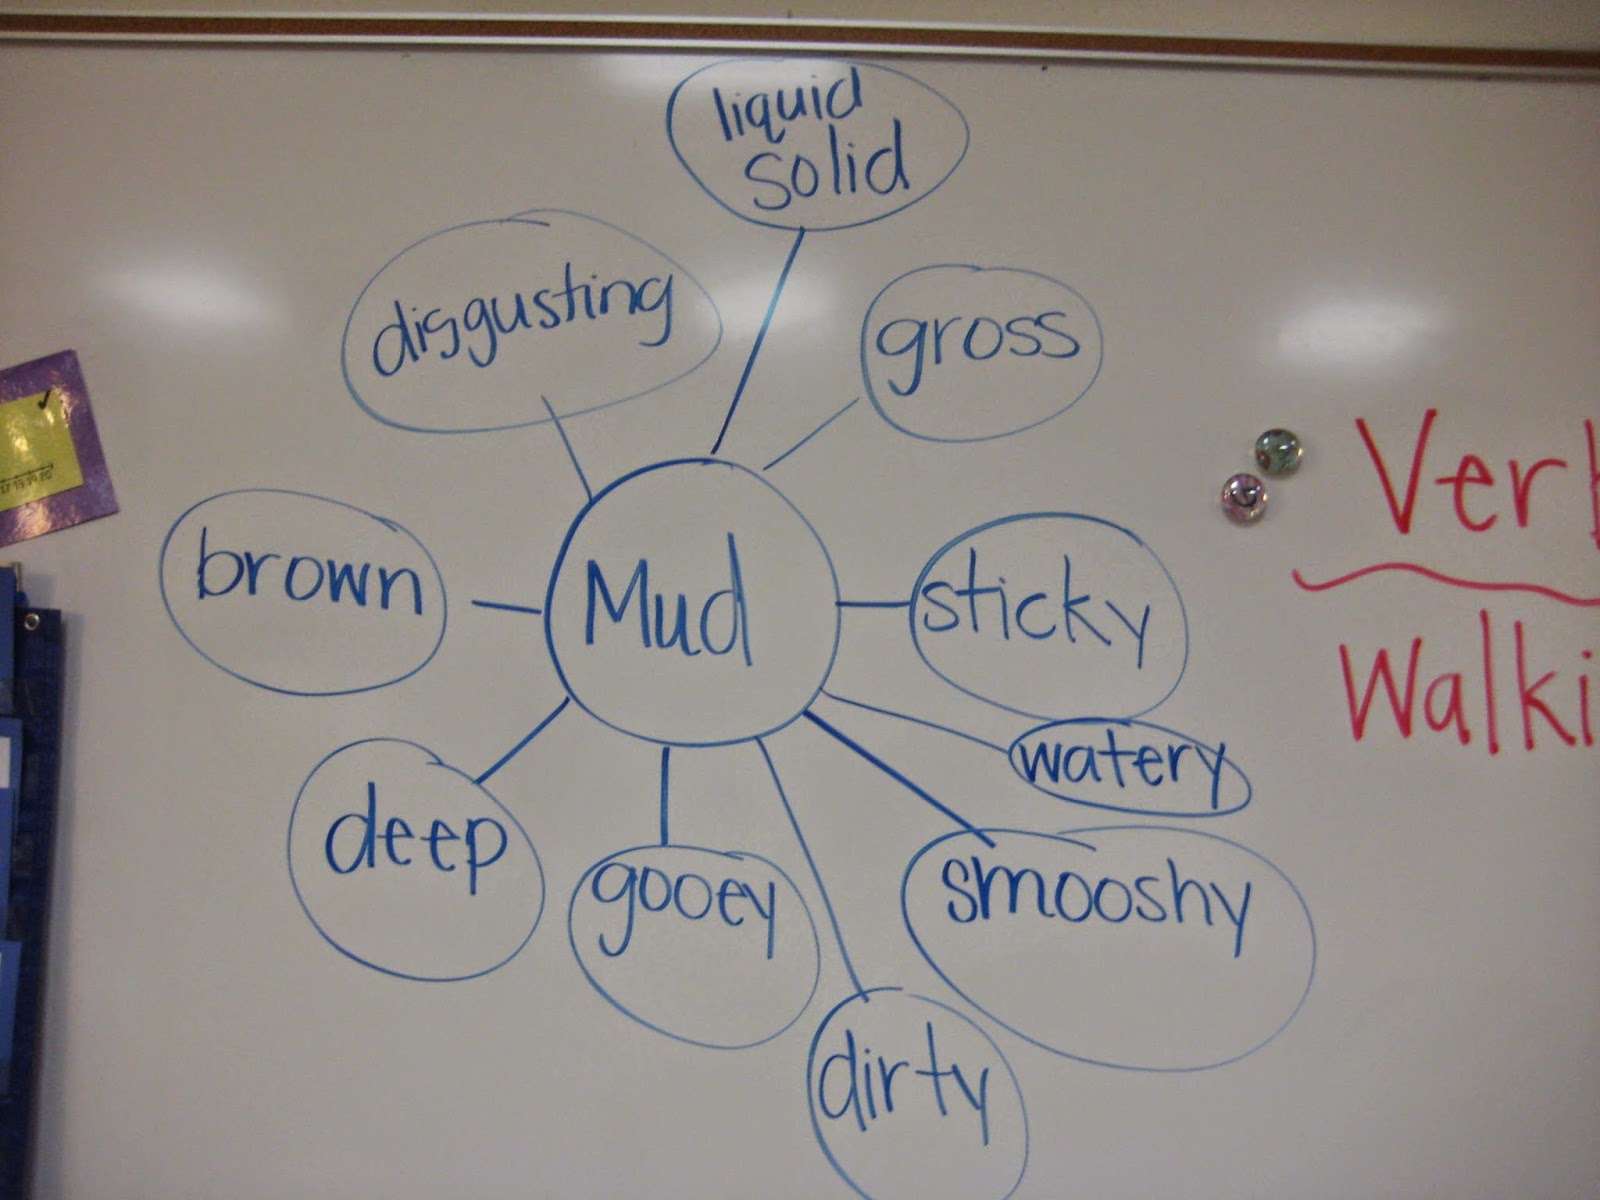 liquid
solid
disgusting
gross
brown
Mud
sticky
watery
deep
gooey
smooshy
dirty
Verb
Walki
17 18 19 20